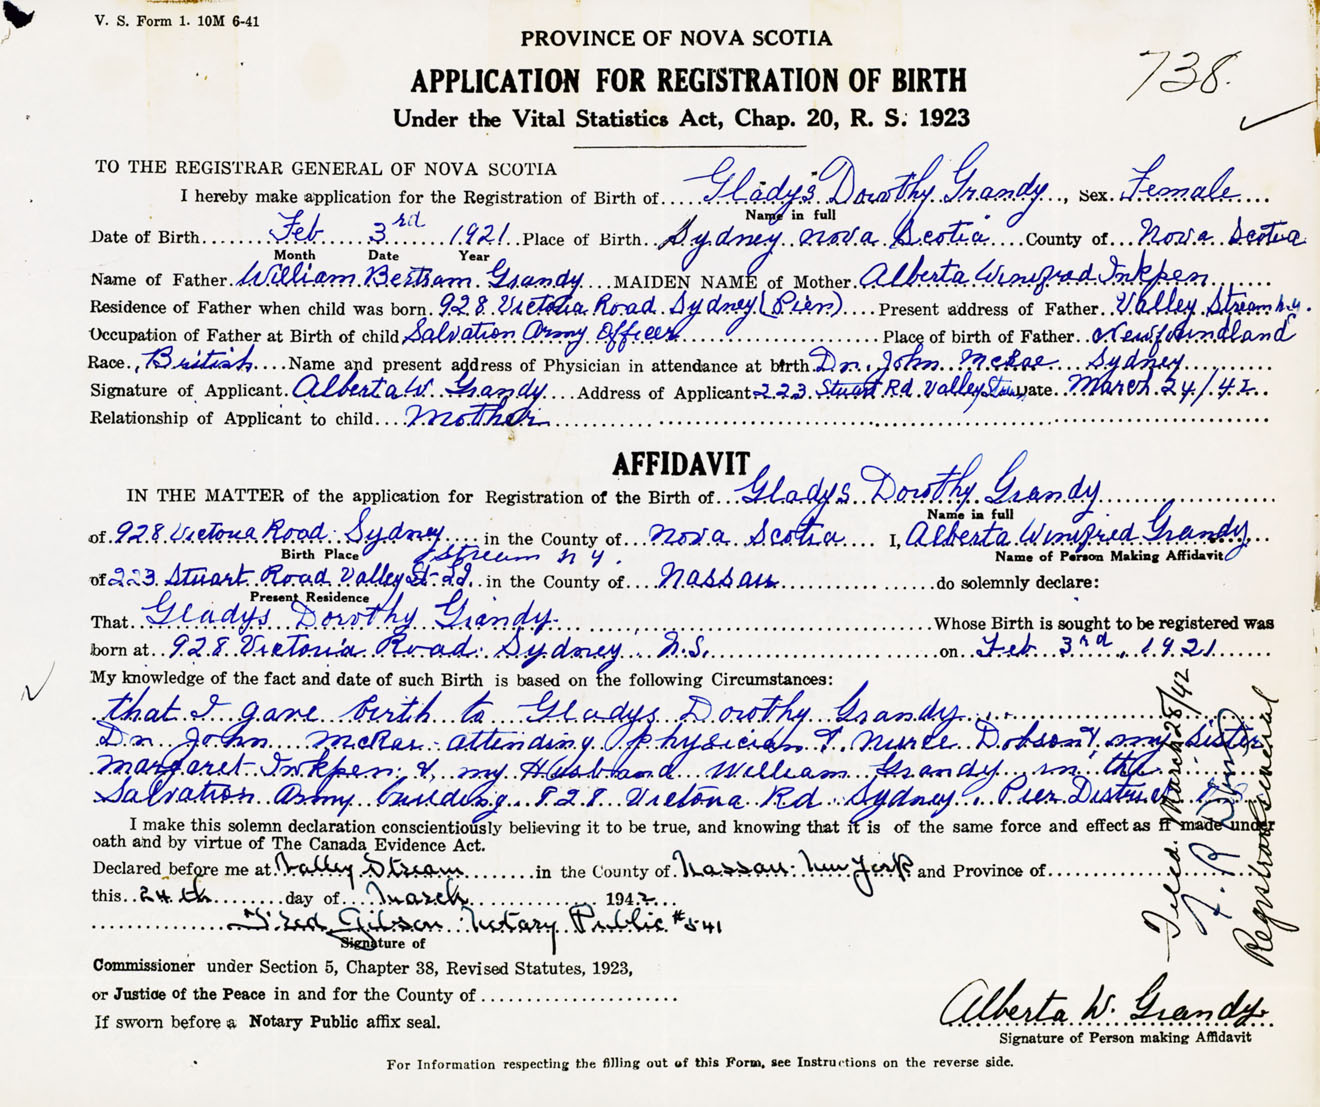 V. S. Form 1. 10M 6-41
PROVINCE OF NOVA SCOTIA
738.
APPLICATION FOR REGISTRATION OF BIRTH
Under the Vital Statistics Act, Chap. 20, R. S. 1923
TO THE REGISTRAR GENERAL OF NOVA SCOTIA
I hereby make application for the Registration of Birth of Gladys Dorothy Grandy, Sex Female
Name in full
Date of Birth Feb 3rd 1921 Place of Birth Sydney Nova Scotia County of Nova Scotia
Month Date Year
Name of Father William Bertram Grandy MAIDEN NAME of Mother Alberta Winifred Inkpen
Residence of Father when child was born 928 Victoria Road Sydney (Pier) Present address of Father Valley Stream N.Y.
Occupation of Father at Birth of child Salvation Army Officer Place of birth of Father Newfoundland
Race British Name and present address of Physician in attendance at birth Dr. John McRae Sydney
Signature of Applicant Alberta W. Grandy Address of Applicant 223 Stuart Rd. Valley Stream Date March 24/42
Relationship of Applicant to child Mother
AFFIDAVIT
IN THE MATTER of the application for Registration of the Birth of Gladys Dorothy Grandy
Name in full
of 928 Victoria Road Sydney in the County of Nova Scotia I, Alberta Winifred Grandy
Birth Place Name of Person Making Affidavit
Stream N Y.
of 223 Stuart Road Valley in the County of Nassau do solemnly declare:
Present Residence
That Gladys Dorothy Grandy Whose Birth is sought to be registered was
born at 928 Victoria Road Sydney N.S. on Feb 3rd, 1921
My knowledge of the fact and date of such Birth is based on the following Circumstances:
that I gave birth to Gladys Dorothy Grandy
Dr. John McRae attending physician & Nurse Dobson &, my sister
Margaret Inkpen & my Husband William Grandy in the
Salvation Army building 928 Victoria Rd Sydney, Pier District N.S.
I make this solemn declaration conscientiously believing it to be true, and knowing that it is of the same force and effect as if made under
oath and by virtue of The Canada Evidence Act.
Declared before me at Valley Stream in the County of Nassau New York and Province of
this 24th day of March 1942
Fred Gibson Notary Public #541
Signature of
Commissioner under Section 5, Chapter 38, Revised Statutes, 1923,
or Justice of the Peace in and for the County of
If sworn before a Notary Public affix seal.
Alberta W. Grandy
Signature of Person making Affidavit
For Information respecting the filling out of this Form, see Instructions on the reverse side.
Filed March 28/42
Registrar General